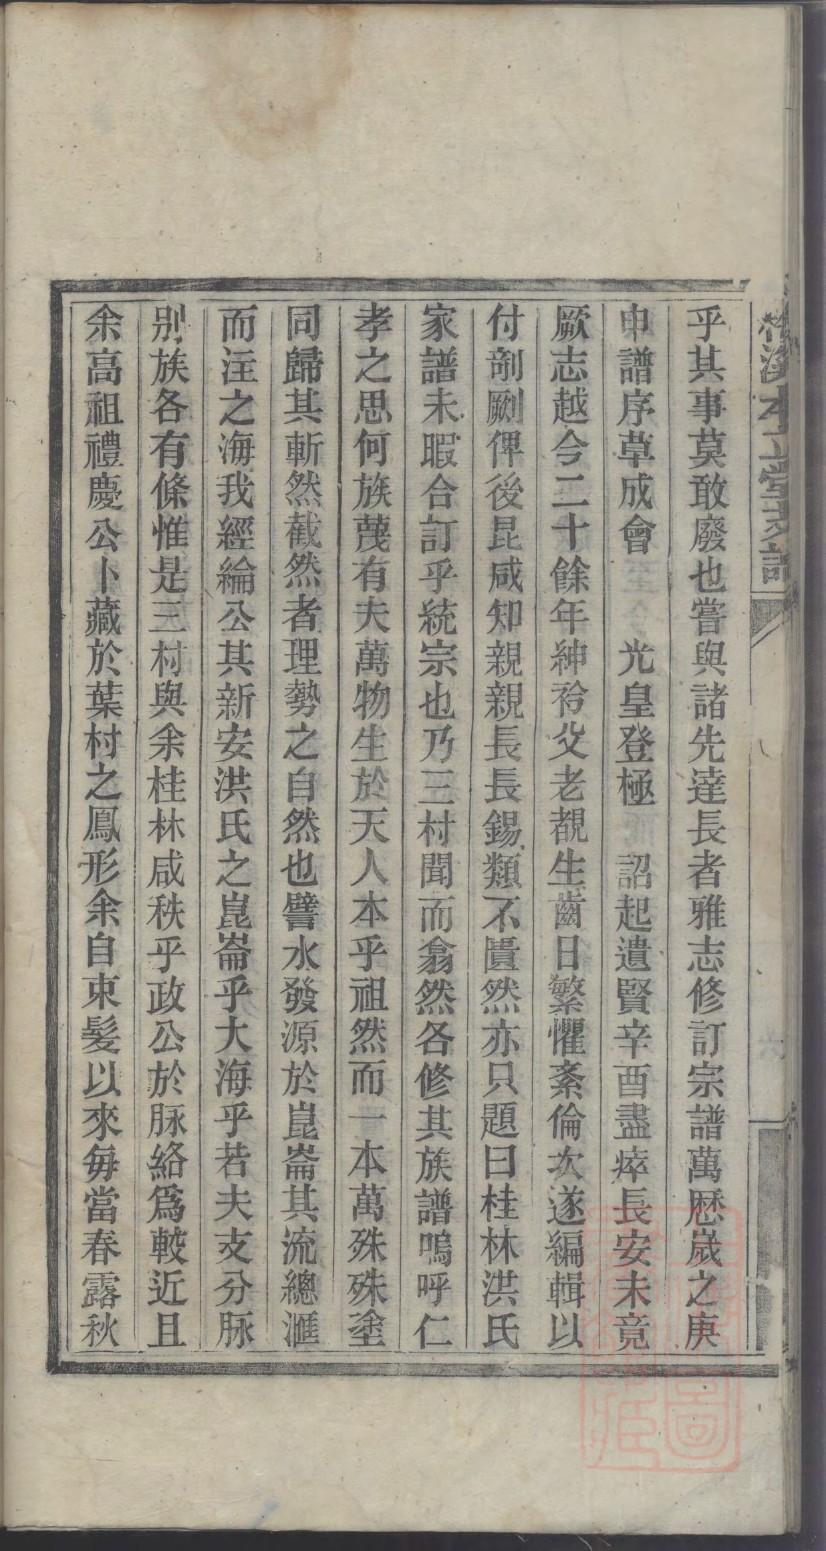 乎其事莫敢廢也嘗與諸先達長者雅志修訂宗譜萬歷歲之庚
申譜序草成會　光皇登極　詔起遺賢辛酉盡瘁長安未竟
厥志越今二十餘年紳衿父老覩生齒日繁懼紊倫次遂編輯以
付剞劂俾後昆咸知親親長長錫類不匱然亦只題曰桂林洪氏
家譜未暇合訂乎統宗也乃三村聞而翕然各修其族譜嗚呼仁
孝之思何族蔑有夫萬物生於天人本乎祖然而一本萬殊殊塗
同歸其斬然截然者理勢之自然也譬水發源於崑崙其流總滙
而注之海我經綸公其新安洪氏之崑崙乎大海乎若夫支分脉
別族各有條惟是三村與余桂林咸秩乎政公於脉絡爲較近且
余高祖禮慶公卜藏於葉村之鳳形余自束髮以來每當春露秋